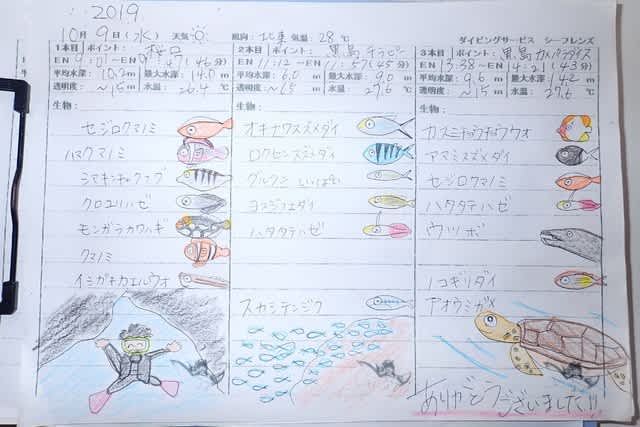 2019
10月9日(水) 天気 風向:北東 気温:28℃ ダイビングサービス シーフレンズ
1本目 ポイント:
EN 9:01~EX 9:47(46分)
平均水深:10.2m 最大水深:14.0m
透明度:~15m 水温:26.4℃
生物:
セジロクマノミ
ハマクマノミ
シマキンチャクフグ
クロユリハゼ
モンガラカワハギ
クマノミ
イシガキカエルウオ
2本目 ポイント:黒島
EN 11:12~EX 11:57(45分)
平均水深:6.0m 最大水深:9.0m
透明度:~15m 水温:27.6℃
生物:
オキナワスズメダイ
ロクセンスズメダイ
グルクン いっぱい
ヨスジフエダイ
ハタタテハゼ
スカシテンジク
3本目 ポイント:黒島カメパラダイス
EN 13:38~EX 14:21(43分)
平均水深:9.6m 最大水深:14.2m
透明度:~15m 水温:27.6℃
生物:
カスミチョウチョウウオ
アマミスズメダイ
セジロクマノミ
ハタタテハゼ
ウツボ
ノコギリダイ
アオウミガメ
ありがとうございました!!